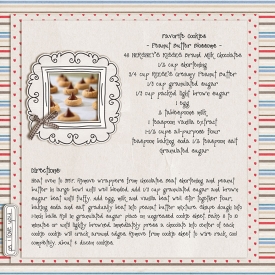 Favorite Cookies
- Peanut Butter Blossoms -
48 HERSHEY'S KISSES Brand Milk Chocolates
1/2 cup shortening
3/4 cup REESE'S Creamy Peanut Butter
1/3 cup granulated sugar
1/3 cup packed light brown sugar
1 egg
2 tablespoons milk
1 teaspoon vanilla extract
1-1/2 cups all-purpose flour
1 teaspoon baking soda 1/2 teaspoon salt
Granulated sugar
Directions:
Heat oven to 375. Remove wrappers from chocolates. Beat shortening and peanut
butter in large bowl until well blended. Add 1/3 cup granulated sugar and brown
sugar; beat until fluffy. Add egg, milk and vanilla; beat well. Stir together flour,
baking soda and salt; gradually beat into peanut butter mixture. Shape dough into
1-inch balls. Roll in granulated sugar; place on ungreased cookie sheet. Bake 8 to 10
minutes or until lightly browned. Immediately press a chocolate into center of each
cookie; cookie will crack around edges. Remove from cookie sheet to wire rack. Cool
completely. About 4 dozen cookies.